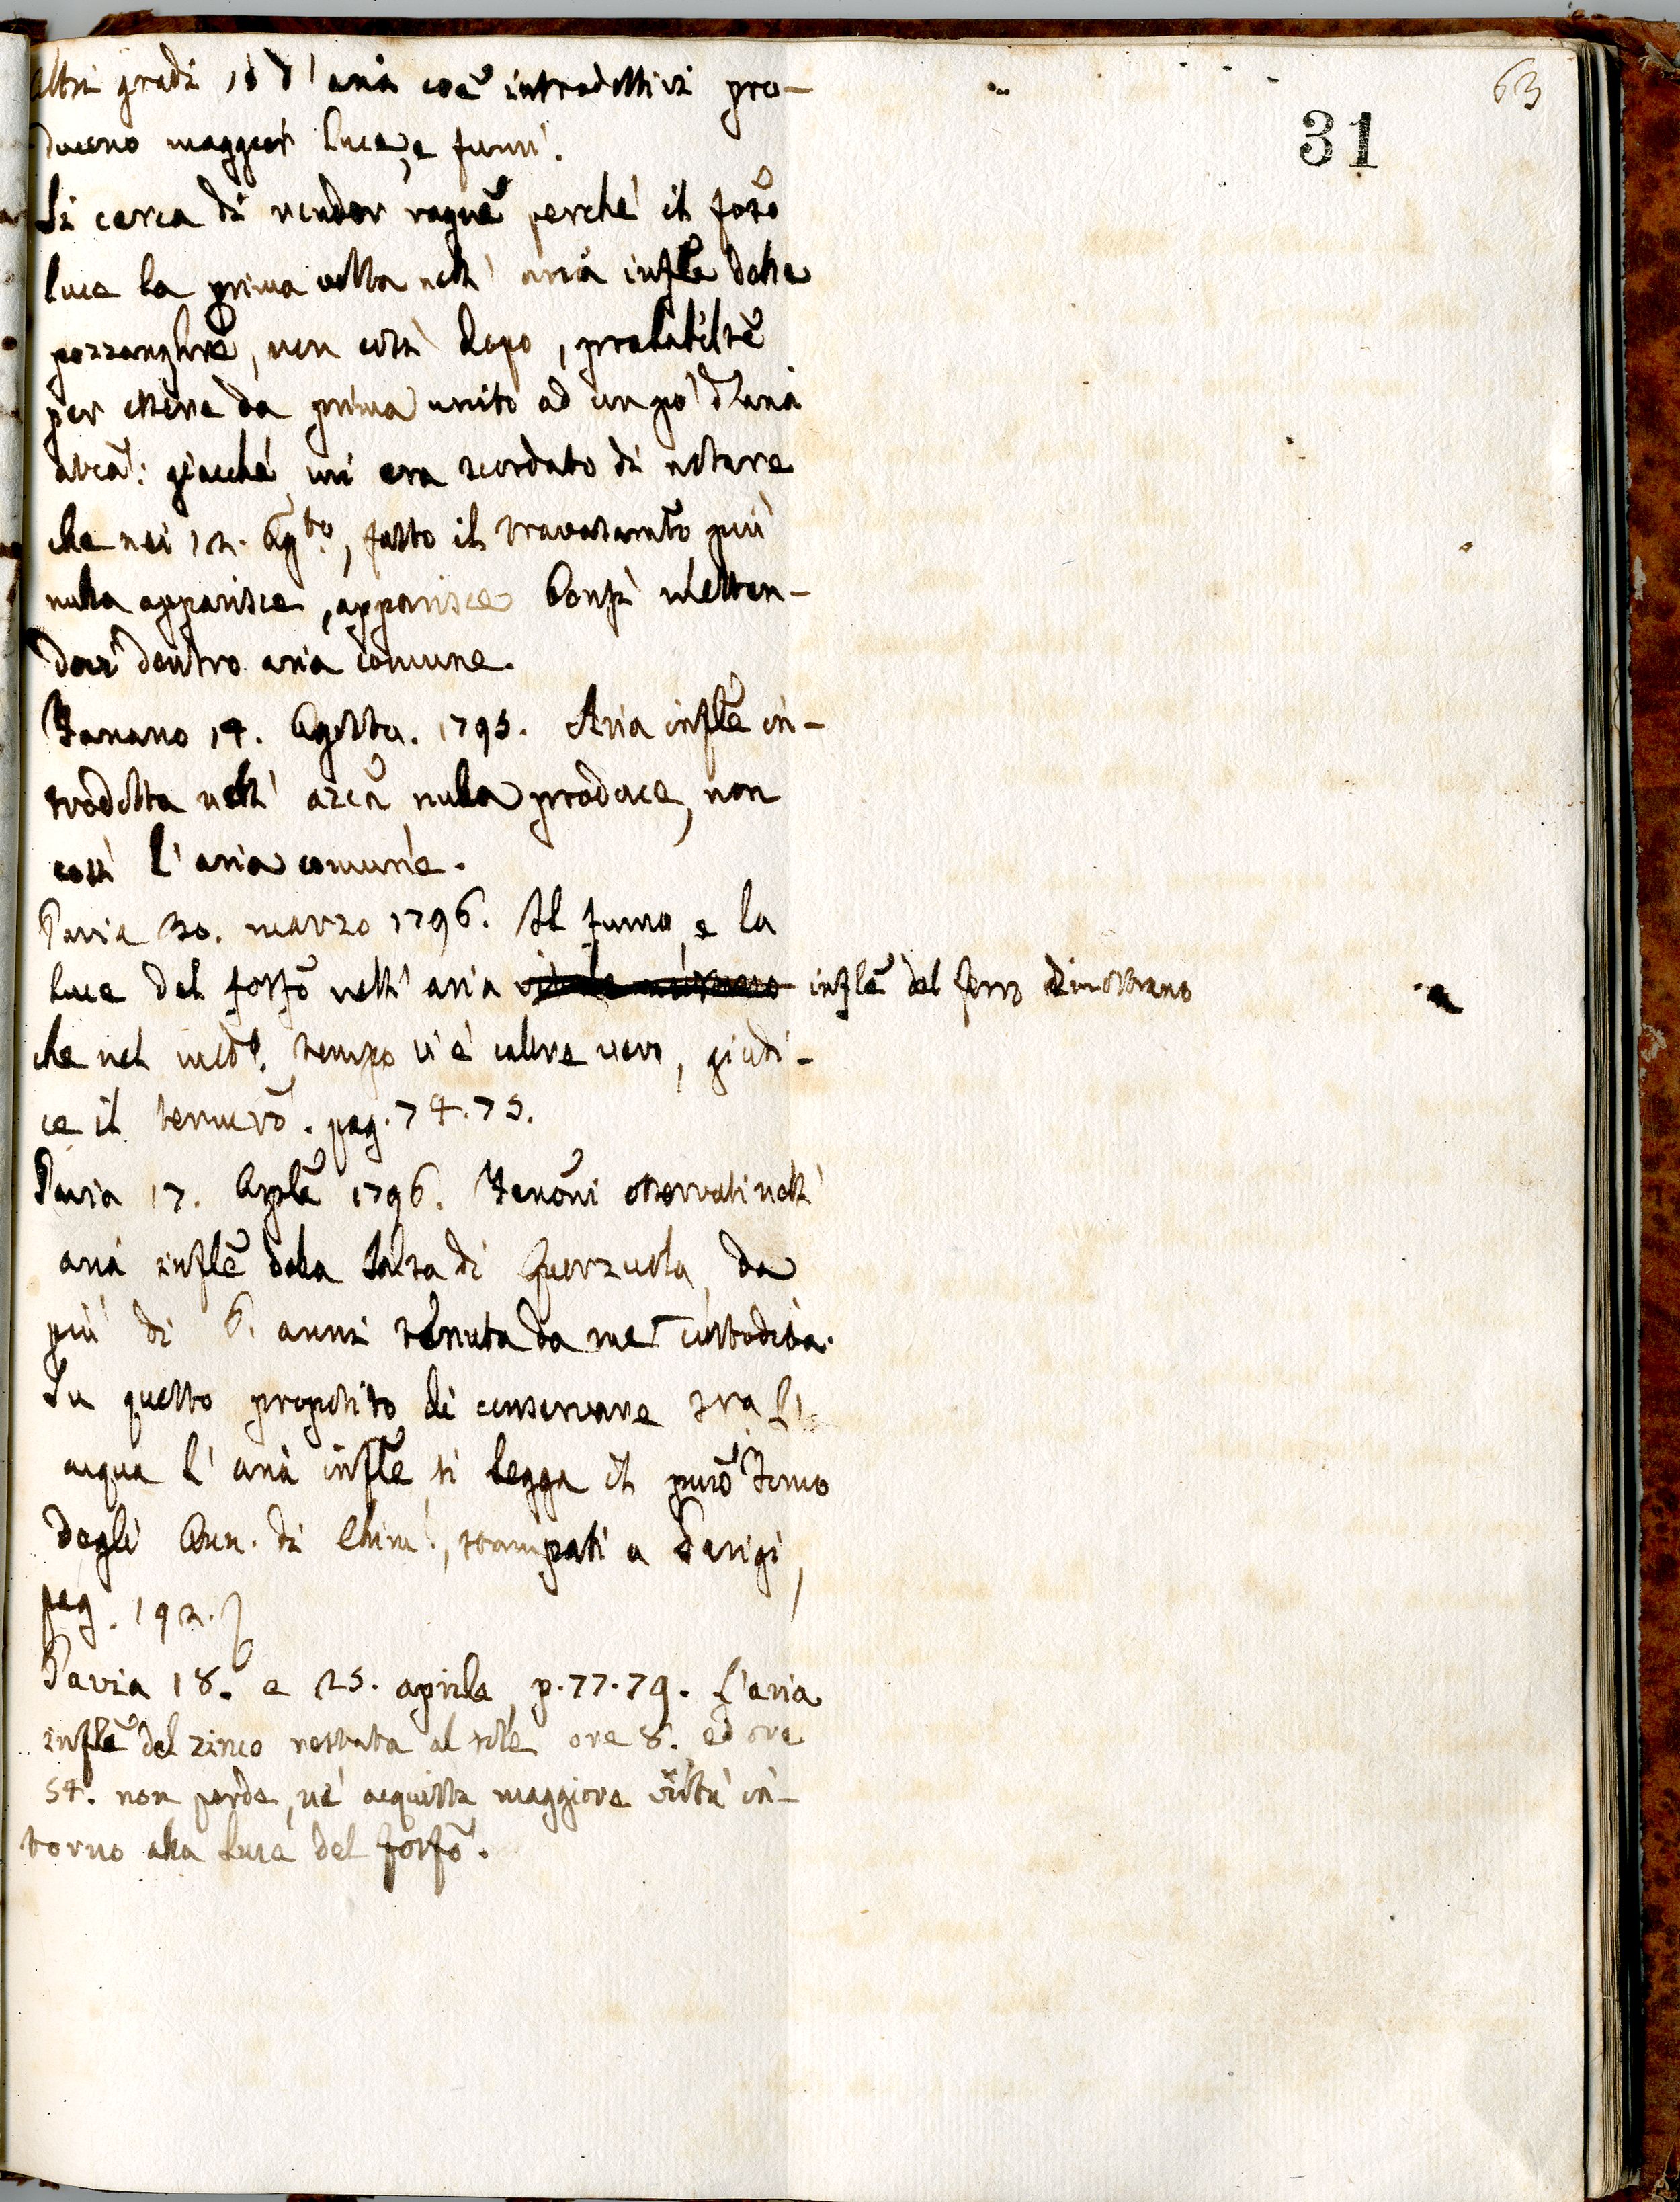 63
31
altri gradi 18 d'aria coẽ introdottivi pro-
ducono maggior luce, e fumi.
Si cerca di render ragnẽ perché il fosfõ
luce la prima volta nell' aria inflẽ delle
pozzanghrẽ, non così dopo, probabiltẽ
per essere da prima unito ad un po' d'aria
atcã: giacché mi era scordato di notare
che nei 12. Agto, fatto il travasamtõ più
nulla apparisce, apparisce bensì metten-
dovi dentro aria comune.
Fanano 14. Agosto. 1795. Aria inflẽ in-
trodotta nell' azcã nulla produce, non
così l'aria comune.
Pavia 30. marzo 1796. Il fumo, e la
luce del fosfõ nell' aria inflẽ del ferro dimostrano
che nel medo. tempo vi è calore vero, giudi-
ce il termrõ. pag. 74.75.
Pavia 17. Aprlẽ 1796. Fenõni osservati nell'
aria inflẽ della Salsa di Querzuola, da
più di 6. anni tenuta da me custodita.
Su questo proposito di conservare tra l'
acqua l'aria inflẽ, si legga il prmõ Tomo
degli Ann. di Chim., stampati a Parigi,
pag. 192.
Pavia 18. e 25. aprile, p. 77.79. L'aria
inflẽ del zinco restata al sole ore 8. ed ore
54. non perde, né acquista maggiore virtù in-
torno alla luce del fosfõ.